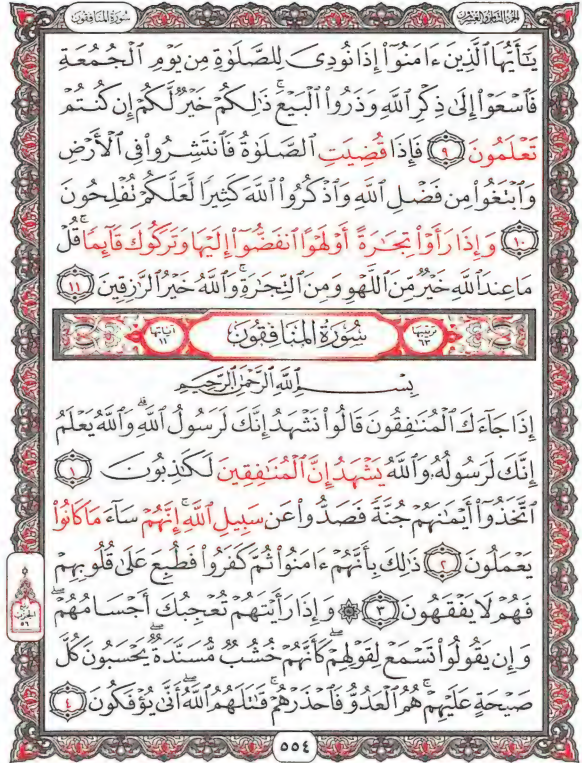 الجزء الثامن والعشرون
سورة المنافقون
يَٰٓأَيُّهَا ٱلَّذِينَ ءَامَنُوٓا۟ إِذَا نُودِىَ لِلصَّلَوٰةِ مِن يَوْمِ ٱلْجُمُعَةِ
فَٱسْعَوْا۟ إِلَىٰ ذِكْرِ ٱللَّهِ وَذَرُوا۟ ٱلْبَيْعَ ۚ ذَٰلِكُمْ خَيْرٌ لَّكُمْ إِن كُنتُمْ
تَعْلَمُونَ ٩ فَإِذَا قُضِيَتِ ٱلصَّلَوٰةُ فَٱنتَشِرُوا۟ فِى ٱلْأَرْضِ
وَٱبْتَغُوا۟ مِن فَضْلِ ٱللَّهِ وَٱذْكُرُوا۟ ٱللَّهَ كَثِيرًا لَّعَلَّكُمْ تُفْلِحُونَ
١٠ وَإِذَا رَأَوْا۟ تِجَٰرَةً أَوْ لَهْوًا ٱنفَضُّوٓا۟ إِلَيْهَا وَتَرَكُوكَ قَآئِمًا ۚ قُلْ
مَا عِندَ ٱللَّهِ خَيْرٌ مِّنَ ٱللَّهْوِ وَمِنَ ٱلتِّجَٰرَةِ ۚ وَٱللَّهُ خَيْرُ ٱلرَّٰزِقِينَ ١١
ترتيبها ٦٣ سُورَةُ المُنَافِقُونَ آياتها ١١
بِسْمِ ٱللَّهِ ٱلرَّحْمَٰنِ ٱلرَّحِيمِ
إِذَا جَآءَكَ ٱلْمُنَٰفِقُونَ قَالُوا۟ نَشْهَدُ إِنَّكَ لَرَسُولُ ٱللَّهِ ۗ وَٱللَّهُ يَعْلَمُ
إِنَّكَ لَرَسُولُهُۥ وَٱللَّهُ يَشْهَدُ إِنَّ ٱلْمُنَٰفِقِينَ لَكَٰذِبُونَ ١
ٱتَّخَذُوٓا۟ أَيْمَٰنَهُمْ جُنَّةً فَصَدُّوا۟ عَن سَبِيلِ ٱللَّهِ ۚ إِنَّهُمْ سَآءَ مَا كَانُوا۟
يَعْمَلُونَ ٢ ذَٰلِكَ بِأَنَّهُمْ ءَامَنُوا۟ ثُمَّ كَفَرُوا۟ فَطُبِعَ عَلَىٰ قُلُوبِهِمْ
فَهُمْ لَا يَفْقَهُونَ ٣ ۞ وَإِذَا رَأَيْتَهُمْ تُعْجِبُكَ أَجْسَامُهُمْ ۖ
وَإِن يَقُولُوا۟ تَسْمَعْ لِقَوْلِهِمْ ۖ كَأَنَّهُمْ خُشُبٌ مُّسَنَّدَةٌ ۖ يَحْسَبُونَ كُلَّ
صَيْحَةٍ عَلَيْهِمْ ۚ هُمُ ٱلْعَدُوُّ فَٱحْذَرْهُمْ ۚ قَٰتَلَهُمُ ٱللَّهُ ۖ أَنَّىٰ يُؤْفَكُونَ ٤
ربع
الحزب
٥٦
٥٥٤